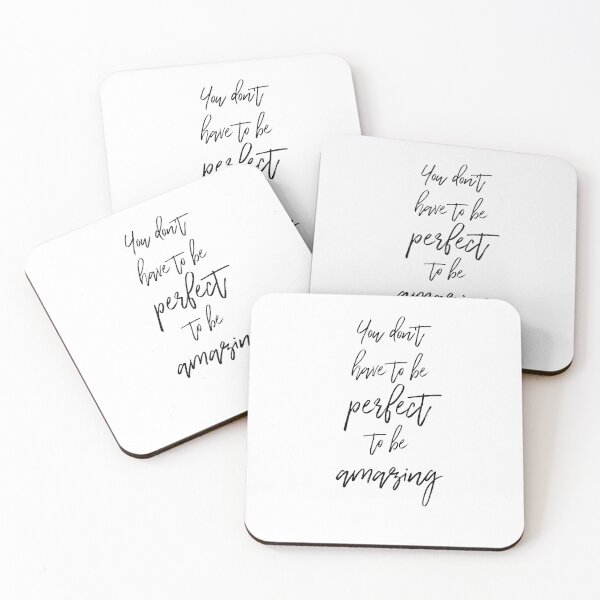 You don't
have to be
perfect
You don't
have to be
perfect
to be
You don't
have to be
perfect
to be
amazing
You don't
have to be
perfect
to be
amazing